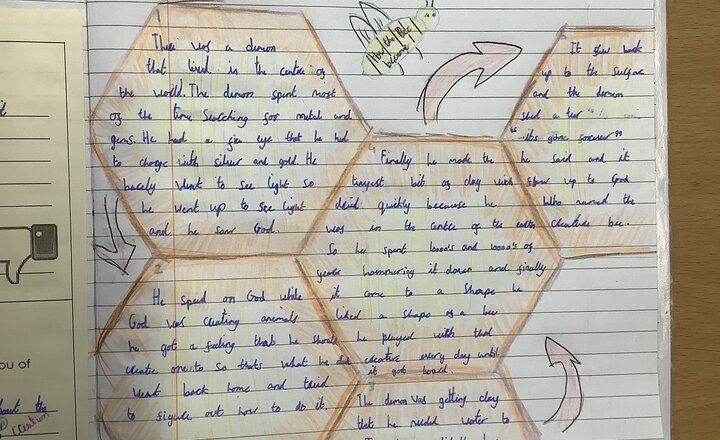 How the Bee
became
1
There was a demon
that lived in the centre of
the world. The demon spent most
of the time searching for metal and
gems. He had a fire eye that he had
to charge with silver and gold. He
barely went to see light so
he went up to see light
and he saw God.
2
He spied on God while
God was creating animals
he got a feeling that he should
create one to so thats what he did
went back home and tried
to figure out how to do it.
3
The demon was getting clay
that he needed water to
4
Finally he made the
tinyest bit of clay wich
dried quickly because he
was in the centre of the earth
So he spent 1000's and 10000's of
years hammuring it down and finally
it come to a shape he
liked a shape of a bee
he played with that
creature every day until
it got board.
5
It flew back
up to the surface
and the demon
shed a tear
"its gone forever"
he said and it
flew up to God
who named the
creature bee.
You of
about the
Creation
it